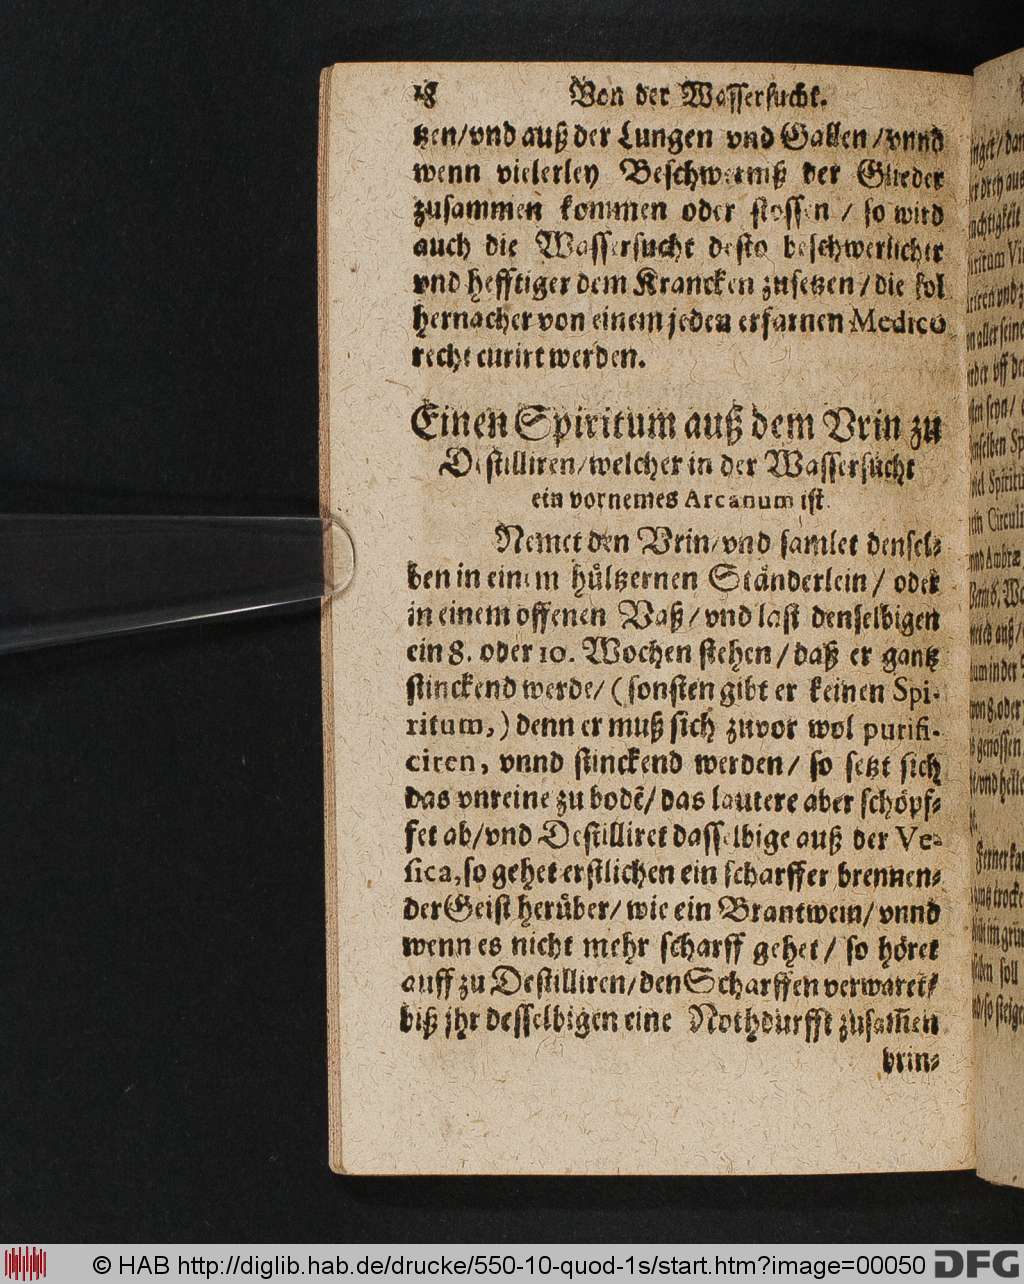 18 Von der Wassersucht.
tzen/vnd auß der Lungen vnd Gallen/vnnd
wenn vielerley Beschwerniß der Glieder
zusammen kommen oder stossen / so wird
auch die Wassersucht desto beschwerlicher
vnd hefftiger dem Krancken zusetzen/die sol
hernacher von einem jeden erfarnen Medico
recht curirt werden.
Einen Spiritum auß dem Vrin zu
Destilliren/welcher in der Wassersucht
ein vornemes Arcanum ist.
Nemet den Vrin/vnd samlet densel-
ben in einem hůltzernen Stånderlein/ oder
in einem offenen Vaß/vnd last denselbigen
ein 8. oder 10. Wochen stehen/daß er gantz
stinckend werde/(sonsten gibt er keinen Spi-
ritum,) denn er muß sich zuvor wol purifi-
ciren, vnnd stinckend werden/ so setzt sich
das vnreine zu bodē/das lautere aber schöpf-
fet ab/vnd Destilliret dasselbige auß der Ve-
sica, so gehet erstlichen ein scharffer brennen-
der Geist herůber/wie ein Brantwein/vnnd
wenn es nicht mehr scharff gehet/ so höret
auff zu Destilliren/den Scharffen verwaret/
biß jhr desselbigen eine Nothdurfft zusam̄en
brin-
© HAB http://diglib.hab.de/drucke/550-10-quod-1s/start.htm?image=00050 DFG